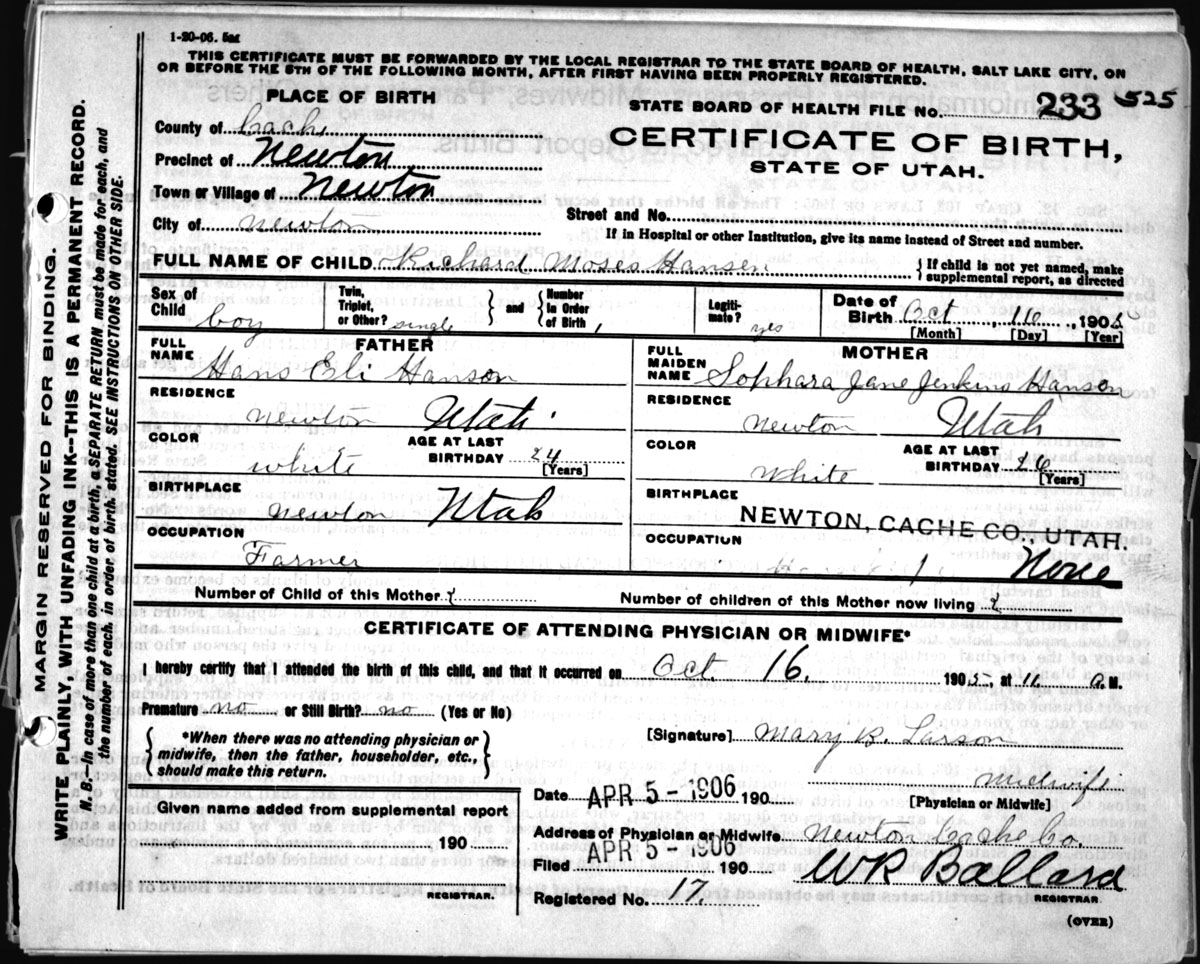 1-20-06. 5m
THIS CERTIFICATE MUST BE FORWARDED BY THE LOCAL REGISTRAR TO THE STATE BOARD OF HEALTH, SALT LAKE CITY, ON
OR BEFORE THE 5TH OF THE FOLLOWING MONTH, AFTER FIRST HAVING BEEN PROPERLY REGISTERED.
PLACE OF BIRTH
STATE BOARD OF HEALTH FILE No. 233 525
County of Cache
CERTIFICATE OF BIRTH,
Precinct of Newton
STATE OF UTAH.
Town or Village of Newton
Street and No.
City of Newton
If in Hospital or other Institution, give its name instead of Street and number.
FULL NAME OF CHILD Richard Moses Hansen
} If child is not yet named, make
supplemental report, as directed
Sex of Child boy
Twin, Triplet, or Other? single } and { Number in Order of Birth 1
Legitimate? yes
Date of Birth Oct, 16, 1905
[Month] [Day] [Year]
FATHER
FULL NAME Hans Eli Hanson
RESIDENCE
Newton Utah
COLOR white
AGE AT LAST BIRTHDAY 24
[Years]
BIRTHPLACE
Newton Utah
OCCUPATION
Farmer
MOTHER
FULL MAIDEN NAME Sophara Jane Jenkins Hansen
RESIDENCE
Newton Utah
COLOR White
AGE AT LAST BIRTHDAY 26
[Years]
BIRTHPLACE
NEWTON, CACHE CO., UTAH.
OCCUPATION
None
Number of Child of this Mother
Number of children of this Mother now living
CERTIFICATE OF ATTENDING PHYSICIAN OR MIDWIFE*
I hereby certify that I attended the birth of this child, and that it occurred on Oct. 16. 1905 at 11 A.M.
Premature no or Still Birth? no (Yes or No)
{ *When there was no attending physician or
midwife, then the father, householder, etc.,
should make this return. }
[Signature] Mary B. Larson
Midwife
[Physician or Midwife]
Date APR 5 - 1906 190
Given name added from supplemental report
190
REGISTRAR.
Address of Physician or Midwife Newton Cache Co.
Filed APR 5 - 1906 190
WR Ballard
REGISTRAR.
Registered No. 17.
(OVER)
MARGIN RESERVED FOR BINDING.
WRITE PLAINLY, WITH UNFADING INK--THIS IS A PERMANENT RECORD.
N. B.--In case of more than one child at a birth, a SEPARATE RETURN must be made for each, and
the number of each, in order, of birth, stated. SEE INSTRUCTIONS ON OTHER SIDE.